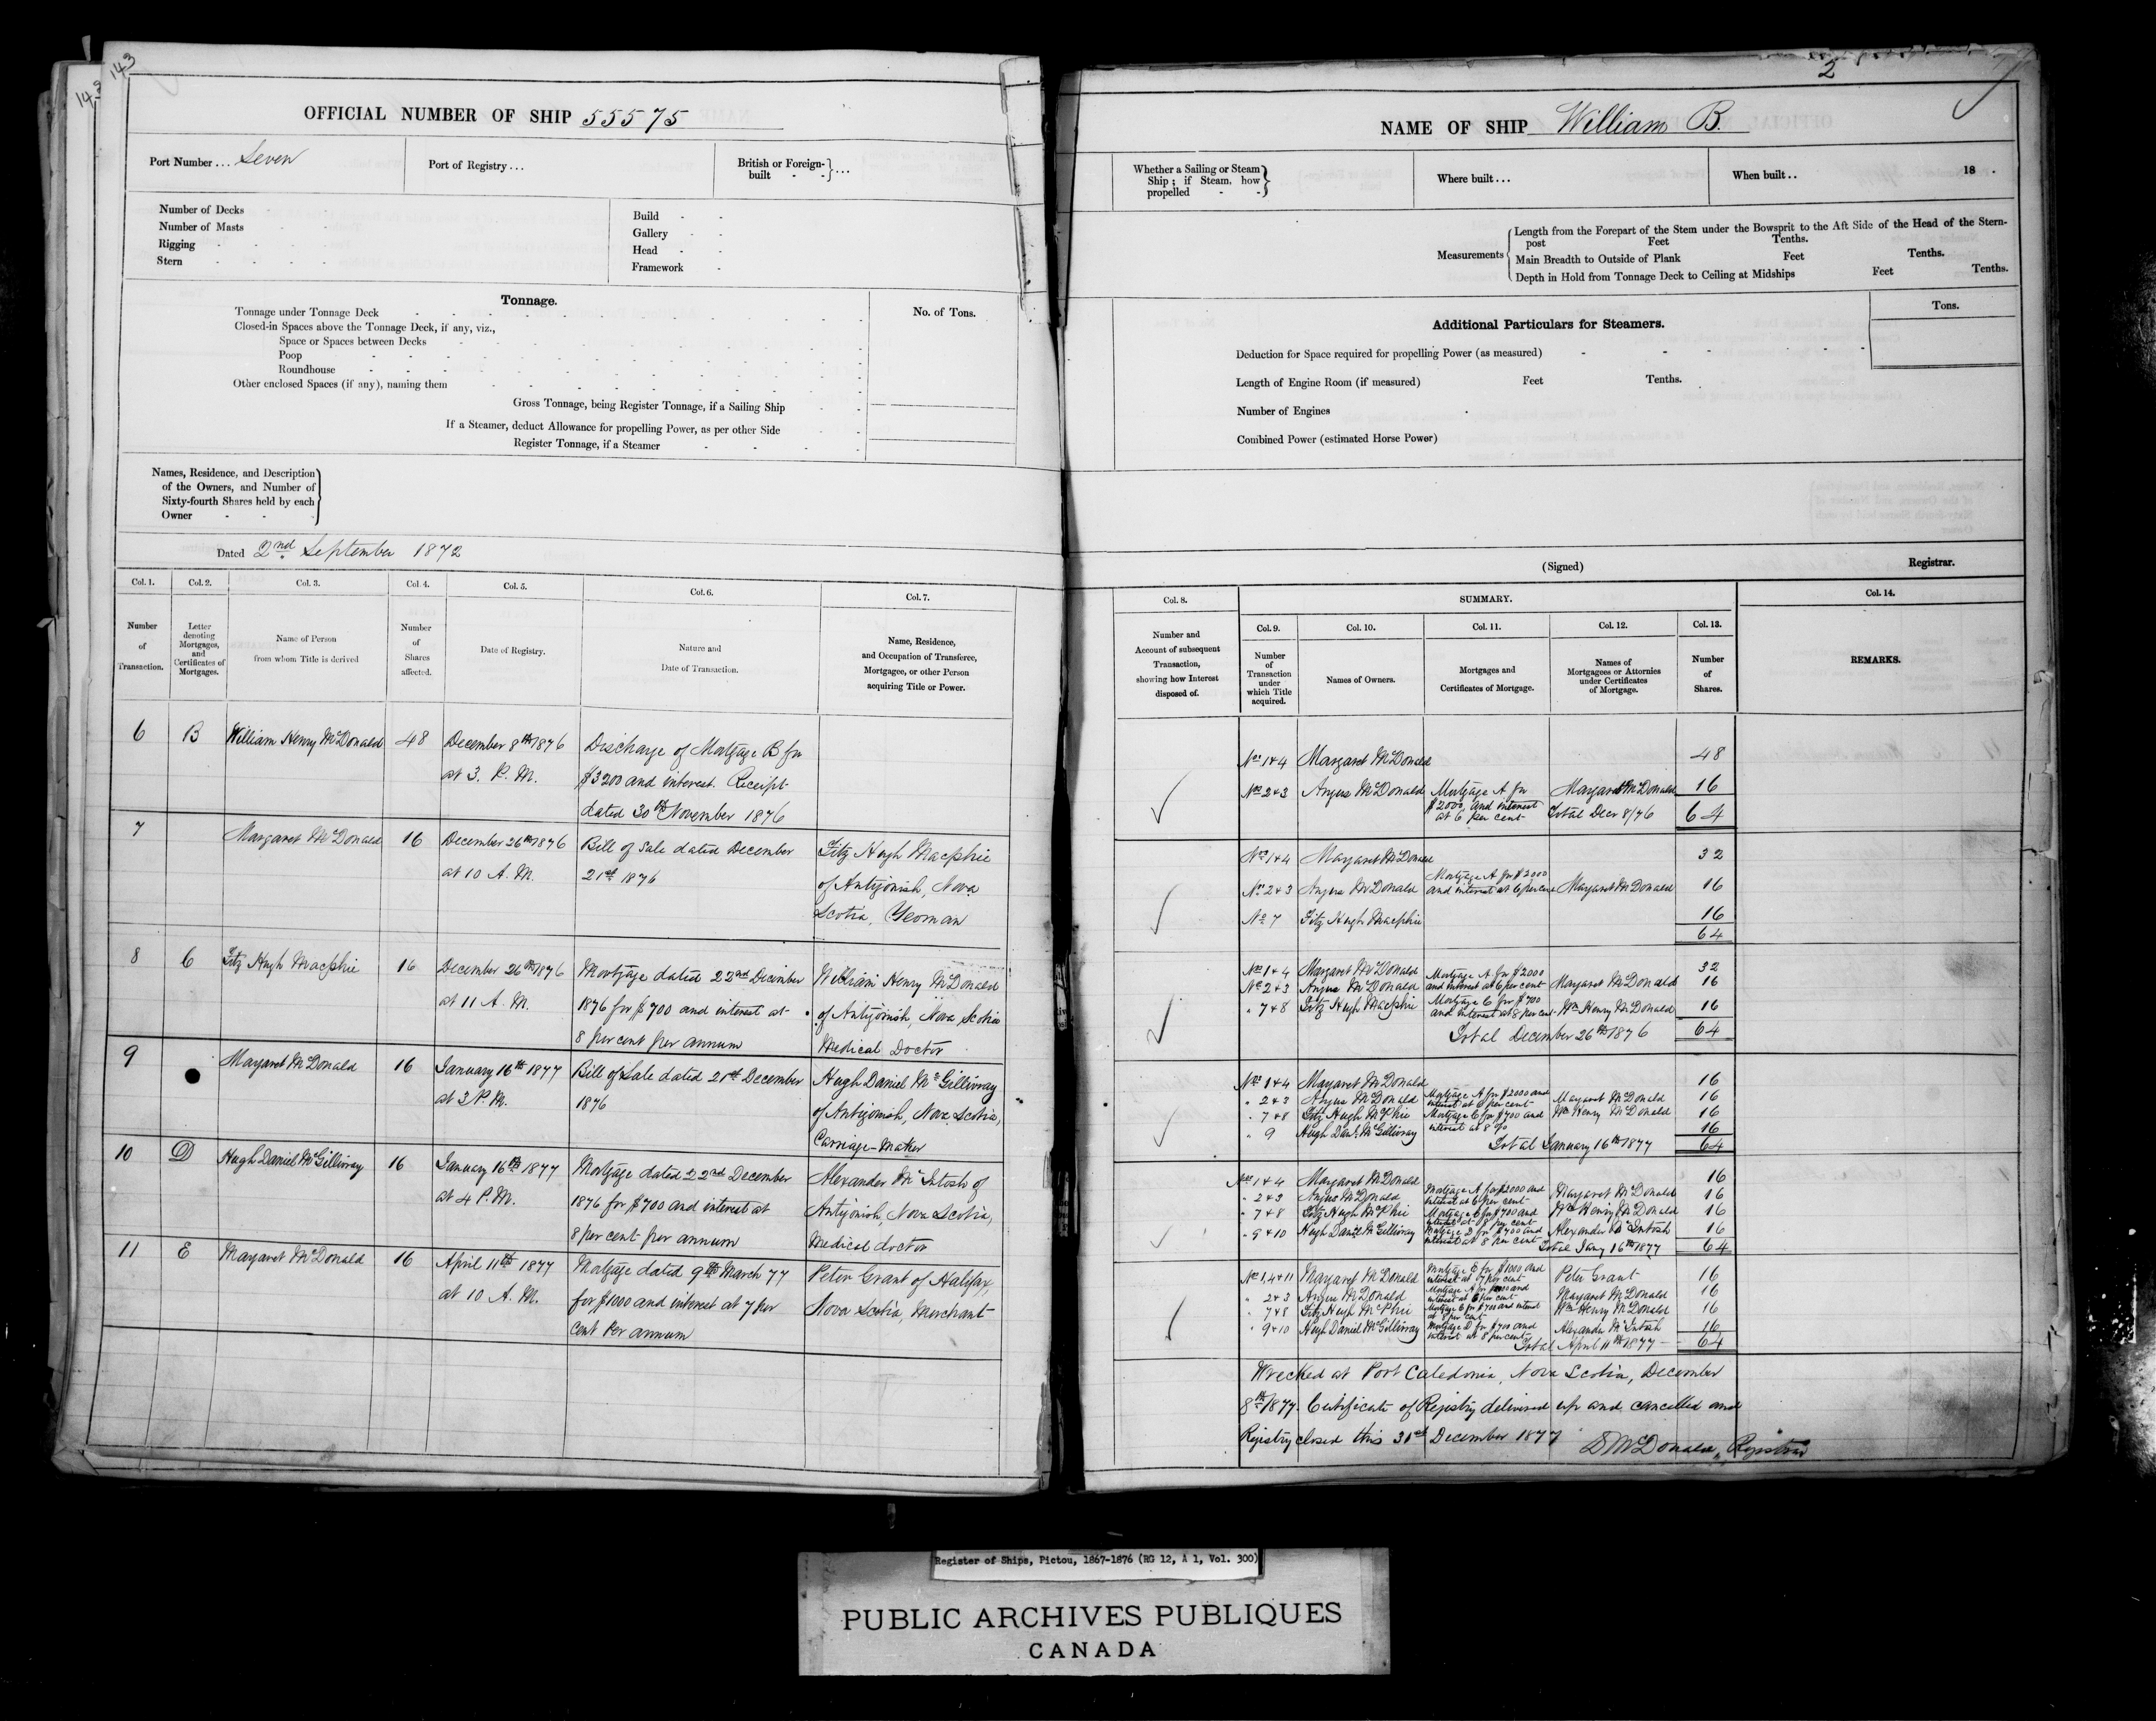 143
143
OFFICIAL NUMBER OF SHIP 55575
Port Number ... Seven
Port of Registry ...
British or Foreign-
built - - } ...
Number of Decks
Number of Masts
Rigging
Stern
Build
Gallery
Head
Framework
Tonnage.
No. of Tons.
Tonnage under Tonnage Deck
Closed-in Spaces above the Tonnage Deck, if any, viz.,
Space or Spaces between Decks
Poop
Roundhouse
Other enclosed Spaces (if any), naming them
Gross Tonnage, being Register Tonnage, if a Sailing Ship
If a Steamer, deduct Allowance for propelling Power, as per other Side
Register Tonnage, if a Steamer
Names, Residence, and Description
of the Owners, and Number of
Sixty-fourth Shares held by each
Owner
Dated 2nd September 1872
Col. 1. Col. 2. Col. 3. Col. 4. Col. 5. Col. 6. Col. 7.
Number
of
Transaction.
Letter
denoting
Mortgages,
and
Certificates of
Mortgages.
Name of Person
from whom Title is derived
Number
of
Shares
affected.
Date of Registry.
Nature and
Date of Transaction.
Name, Residence,
and Occupation of Transferee,
Mortgagee, or other Person
acquiring Title or Power.
6 B William Henry McDonald 48 December 8th 1876 Discharge of Mortgage B for
at 3. P. M. $3200 and interest. Receipt
dated 30th November 1876
7 Margaret McDonald 16 December 26th 1876 Bill of Sale dated December Fitz Hugh Macphie
at 10 A. M. 21st 1876 of Antigonish, Nova
Scotia, Yeoman
8 C Fitz Hugh Macphie 16 December 26th 1876 Mortgage dated 22nd December William Henry McDonald
at 11 A. M. 1876 for $700 and interest at of Antigonish, Nova Scotia
8 per cent per annum Medical Doctor
9 Margaret McDonald 16 January 16th 1877 Bill of Sale dated 21st December Hugh Daniel McGillivray
at 3 P. M. 1876 of Antigonish, Nova Scotia,
Carriage-Maker
10 D Hugh Daniel McGillivray 16 January 16th 1877 Mortgage dated 22nd December Alexander McIntosh of
at 4 P. M. 1876 for $700 and interest at Antigonish, Nova Scotia,
8 per cent per annum Medical doctor
11 E Margaret McDonald 16 April 11th 1877 Mortgage dated 9th March 77 Peter Grant of Halifax,
at 10 A. M. for $1000 and interest at 7 per Nova Scotia, Merchant
cent per annum
2
NAME OF SHIP William B.
Whether a Sailing or Steam
Ship; if Steam, how
propelled - -
Where built ...
When built .. 18 .
Measurements
Length from the Forepart of the Stem under the Bowsprit to the Aft Side of the Head of the Stern-
post Feet Tenths.
Main Breadth to Outside of Plank Feet Tenths.
Depth in Hold from Tonnage Deck to Ceiling at Midships Feet Tenths.
Additional Particulars for Steamers.
Tons.
Deduction for Space required for propelling Power (as measured)
Length of Engine Room (if measured) Feet Tenths.
Number of Engines
Combined Power (estimated Horse Power)
(Signed) Registrar.
Col. 8. SUMMARY. Col. 14.
Number and
Account of subsequent
Transaction,
showing how Interest
disposed of.
Col. 9. Col. 10. Col. 11. Col. 12. Col. 13.
Number
of
Transaction
under
which Title
acquired.
Names of Owners.
Mortgages and
Certificates of Mortgage.
Names of
Mortgagees or Attornies
under Certificates
of Mortgage.
Number
of
Shares.
REMARKS.
Nos 1+4 Margaret McDonald 48
Nos 2+3 Angus McDonald Mortgage A for Margaret McDonald 16
$2000, and interest
at 6 per cent Total Decr 8/76 64
Nos 1+4 Margaret McDonald 32
Nos 2+3 Angus McDonald Mortgage A for $2000
and interest at 6 per cent Margaret McDonald 16
No 7 Fitz Hugh Macphie 16
64
Nos 1+4 Margaret McDonald 32
Nos 2+3 Angus McDonald Mortgage A for $2000
and interest at 6 per cent Margaret McDonald 16
" 7+8 Fitz Hugh Macphie Mortgage C for $700
and interest at 8 per cent Wm Henry McDonald 16
Total December 26th 1876 64
Nos 1+4 Margaret McDonald 16
" 2+3 Angus McDonald Mortgage A for $2000 and
interest at 6 per cent Margaret McDonald 16
" 7+8 Fitz Hugh McPhie Mortgage C for $700 and
interest at 8 % Wm Henry McDonald 16
" 9 Hugh Danl. McGillivray 16
Total January 16th 1877 64
Nos 1+4 Margaret McDonald 16
" 2+3 Angus McDonald Mortgage A for $2000 and
interest at 6 per cent Margaret McDonald 16
" 7+8 Fitz Hugh McPhie Mortgage C for $700 and
interest at 8 per cent Wm Henry McDonald 16
" 9+10 Hugh Danl McGillivray Mortgage D for $700 and
interest at 8 per cent Alexander McIntosh 16
Total Jany 16th 1877 64
Nos 1,4+11 Margaret McDonald Mortgage E for $1000 and
interest at 7 per cent Peter Grant 16
" 2+3 Angus McDonald Mortgage A for $2000 and
interest at 6 per cent Margaret McDonald 16
" 7+8 Fitz Hugh McPhie Mortgage C for $700 and interest
at 8 per cent Wm Henry McDonald 16
" 9+10 Hugh Daniel McGillivray Mortgage D for $700 and
interest at 8 per cent Alexander McIntosh 16
Total April 11th 1877 64
Wrecked at Port Caledonia, Nova Scotia, December
8th 1877. Certificate of Registry delivered up and cancelled and
Registry closed this 31st December 1877 D McDonald, Registrar
Register of Ships, Pictou, 1867-1876 (RG 12, A 1, Vol. 300)
PUBLIC ARCHIVES PUBLIQUES
CANADA